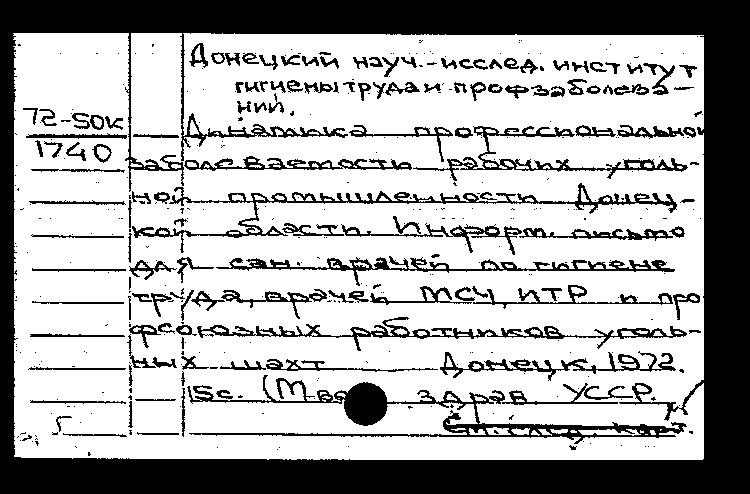 Донецкий науч.-исслед. институт
гигиены труда и профзаболева-
ний.
72-50к
1740
Динамика профессиональной
заболеваемости рабочих уголь-
ной промышленности Донец-
кой области. Информ. письмо
для сан. врачей по гигиене
труда, врачей МСЧ, ИТР и про
фсоюзных работников уголь-
ных шахт Донецк, 1972.
15с. (М-во здрав. УССР.
См. след. карт.